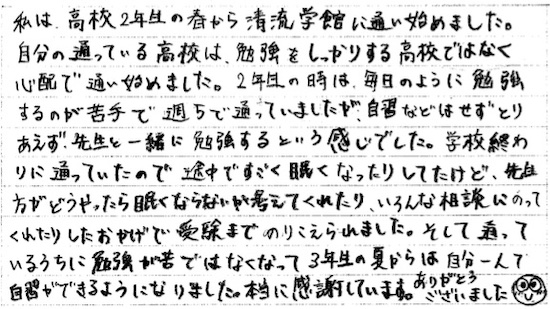 私は、高校2年生の春から清流学館に通い始めました。
自分の通っている高校は、勉強をしっかりする高校ではなく
心配で通い始めました。2年生の時は、毎日のように勉強
するのが苦手で週5で通っていましたが、自習などはせずとり
あえず、先生と一緒に勉強するという感じでした。学校終わ
りに通っていたので途中ですごく眠くなったりしてたけど、先生
方がどうやったら眠くならないか考えてくれたり、いろんな相談にのって
くれたりしたおかげで受験までのりこえられました。そして通って
いるうちに勉強が苦ではなくなって3年生の夏からは自分一人で
自習ができるようになりました。本当に感謝しています。ありがとう
ございました